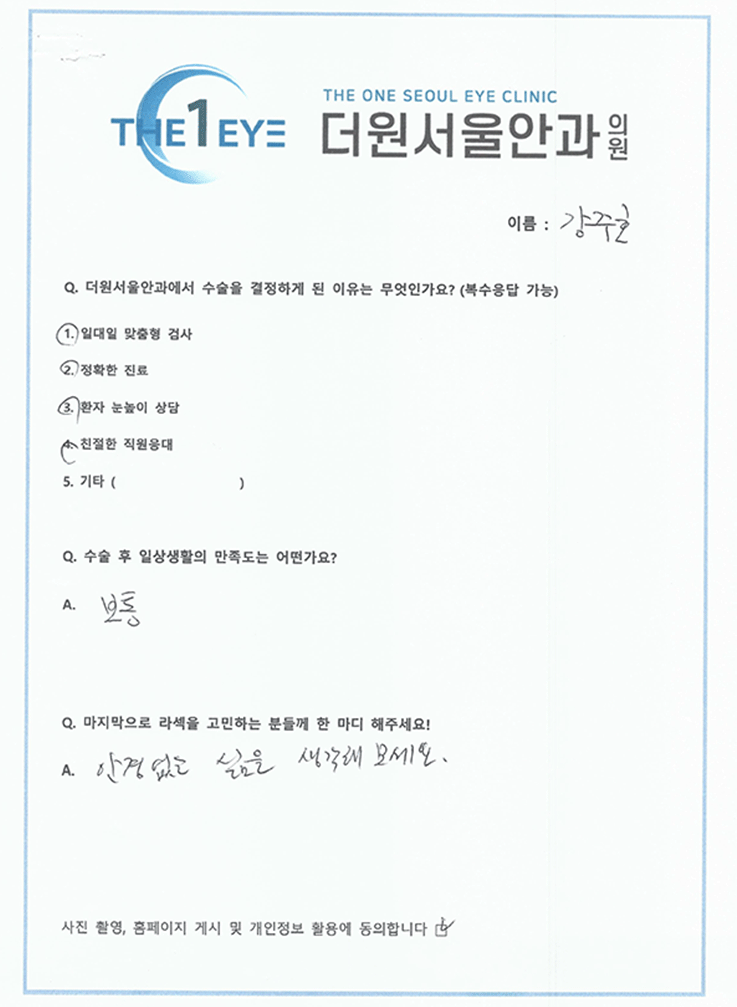 THE 1 EYE
THE ONE SEOUL EYE CLINIC
더원서울안과의원
이름 : 강주호
Q. 더원서울안과에서 수술을 결정하게 된 이유는 무엇인가요? (복수응답 가능)
1. 일대일 맞춤형 검사
2. 정확한 진료
3. 환자 눈높이 상담
4. 친절한 직원응대
5. 기타 ( )
Q. 수술 후 일상생활의 만족도는 어떤가요?
A. 보통
Q. 마지막으로 라섹을 고민하는 분들께 한 마디 해주세요!
A. 안경없는 삶을 생각해보세요.
사진 촬영, 홈페이지 게시 및 개인정보 활용에 동의합니다